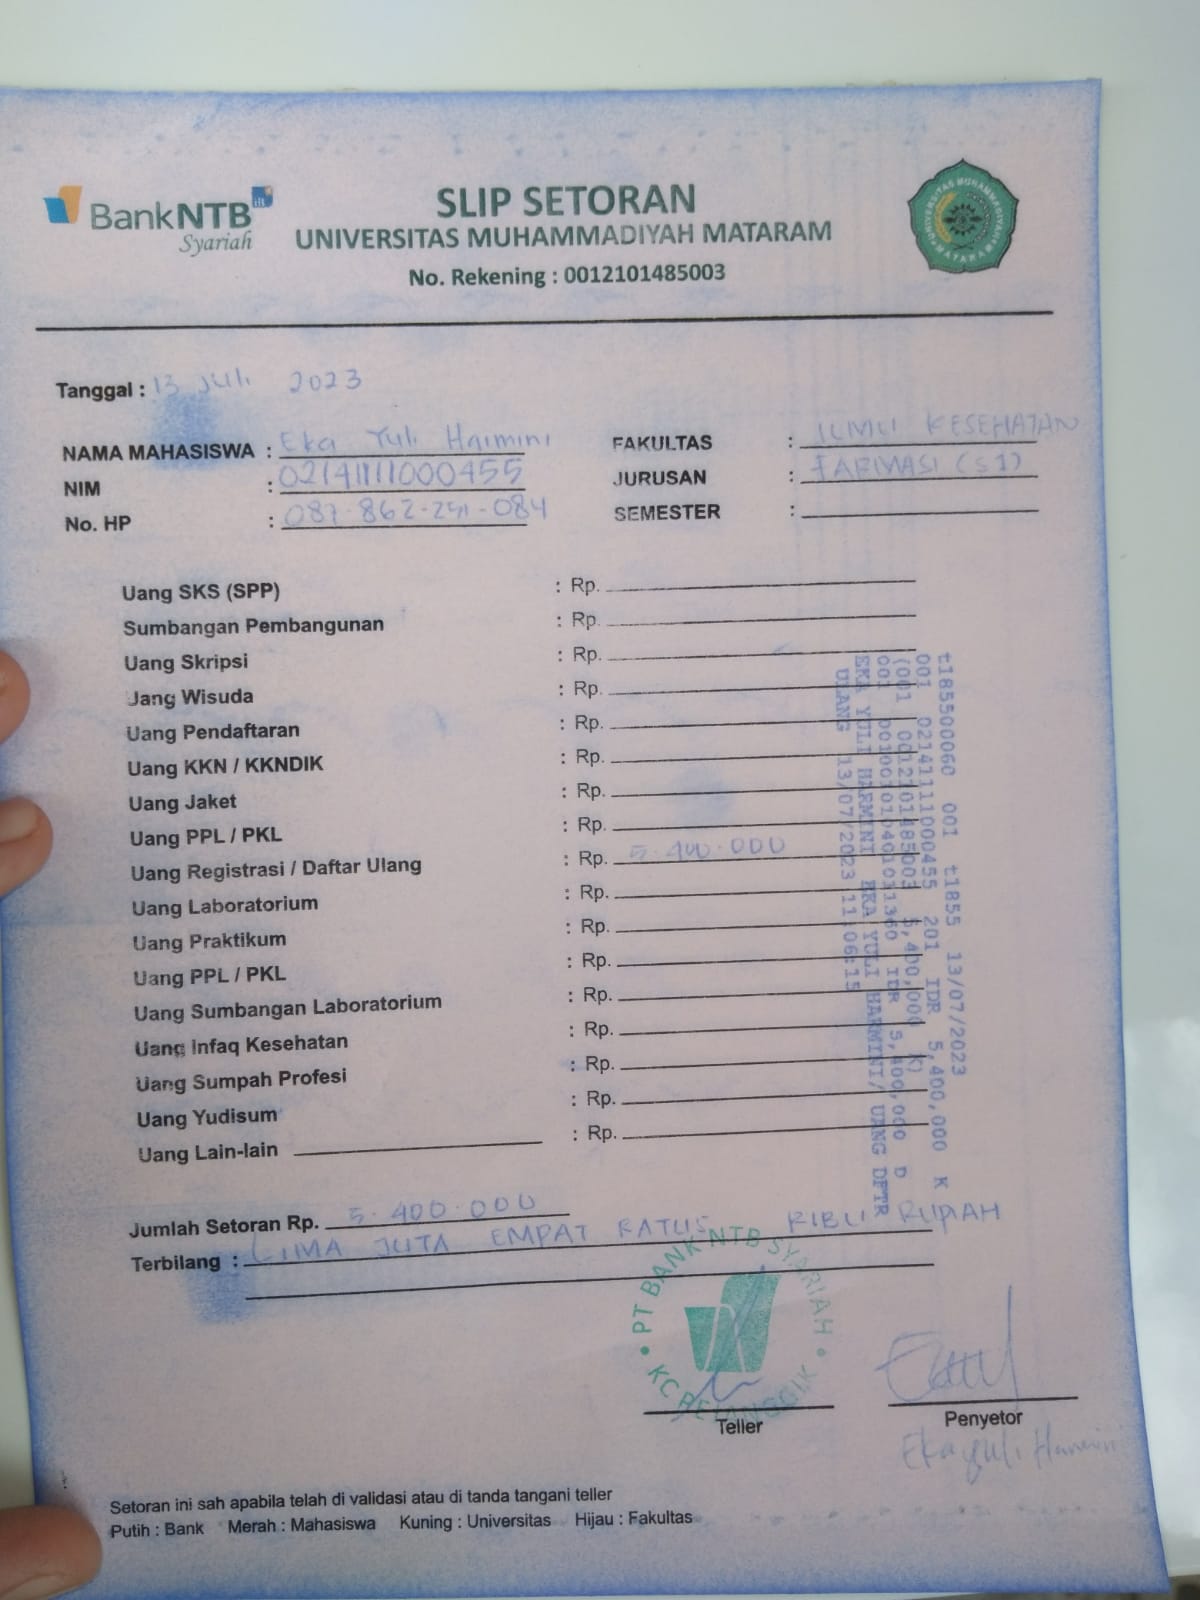 BankNTB
Syariah
SLIP SETORAN
UNIVERSITAS MUHAMMADIYAH MATARAM
No. Rekening : 0012101485003
UNIVERSITAS MUHAMMADIYAH MATARAM
Tanggal : 13 Juli 2023
NAMA MAHASISWA : Eka Yuli Harmini
NIM : 02141111000455
No. HP : 087-862-251-084
FAKULTAS : ILMU KESEHATAN
JURUSAN : FARMASI (S1)
SEMESTER :
Uang SKS (SPP) : Rp.
Sumbangan Pembangunan : Rp.
Uang Skripsi : Rp.
Uang Wisuda : Rp.
Uang Pendaftaran : Rp.
Uang KKN / KKNDIK : Rp.
Uang Jaket : Rp.
Uang PPL / PKL : Rp.
Uang Registrasi / Daftar Ulang : Rp. 5.400.000
Uang Laboratorium : Rp.
Uang Praktikum : Rp.
Uang PPL / PKL : Rp.
Uang Sumbangan Laboratorium : Rp.
Uang Infaq Kesehatan : Rp.
Uang Sumpah Profesi : Rp.
Uang Yudisum : Rp.
Uang Lain-lain : Rp.
t185500060 001 t1855 13/07/2023
001 02141111000455 201 IDR 5,400,000 K
(001 0012101485003 5,400,000 K)
001 001001010401011360 IDR 5,400,000 D
EKA YULI HARMINI EKA YULI HARMINI/ UANG DFTR
ULANG 13/07/2023 11:06:15
Jumlah Setoran Rp. 5.400.000
Terbilang : LIMA JUTA EMPAT RATUS RIBU RUPIAH
PT BANK NTB SYARIAH
KC PEJANGGIK
Teller
Penyetor
Eka yuli Harmini
Setoran ini sah apabila telah di validasi atau di tanda tangani teller
Putih : Bank Merah : Mahasiswa Kuning : Universitas Hijau : Fakultas